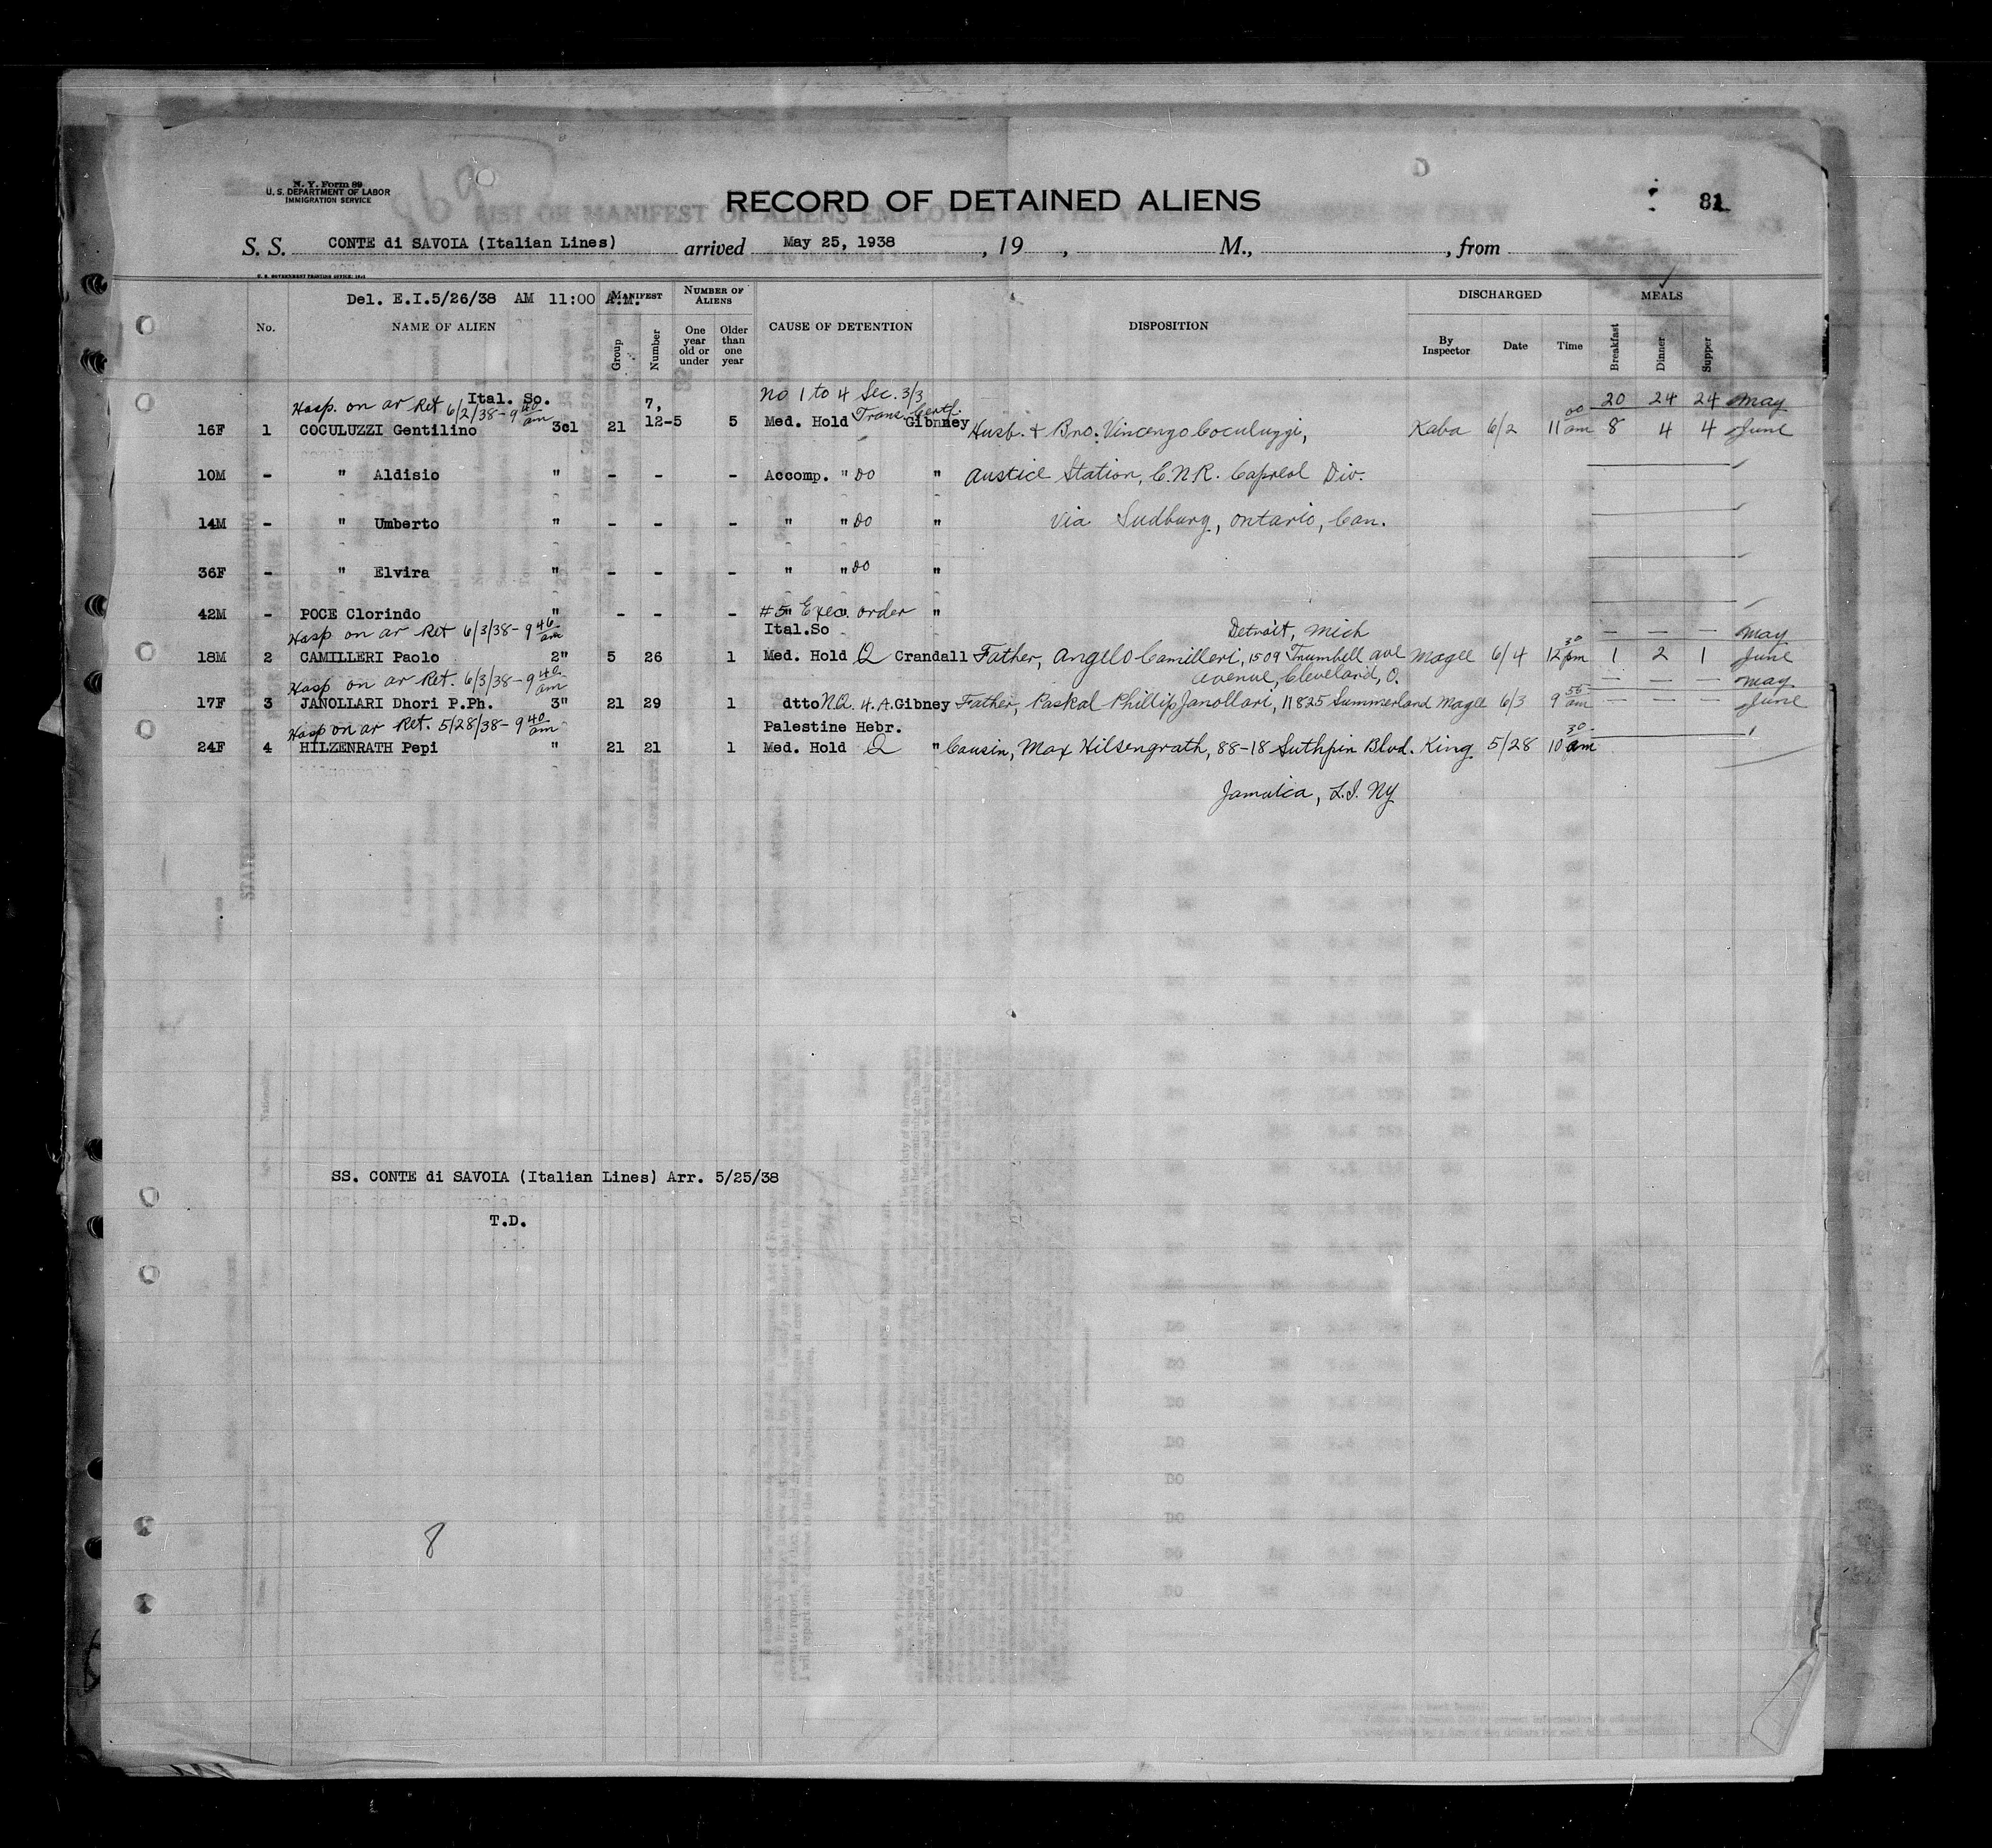 N. Y. Form 89
U. S. DEPARTMENT OF LABOR
IMMIGRATION SERVICE
RECORD OF DETAINED ALIENS
81
S. S. CONTE di SAVOIA (Italian Lines) arrived May 25, 1938, 19, M., from
U. S. GOVERNMENT PRINTING OFFICE:
Del. E.I.5/26/38 AM 11:00 A.M.
No. NAME OF ALIEN MANIFEST Group Number NUMBER OF ALIENS One year old or under Older than one year CAUSE OF DETENTION DISPOSITION DISCHARGED By Inspector Date Time MEALS Breakfast Dinner Supper
Ital. So. 7, no 1 to 4 Sec. 3/3 20 24 24 May
Hosp. on ar Ret 6/2/38 - 9 40 am Trans. Certf.
16F 1 COCULUZZI Gentilino 3cl 21 12-5 5 Med. Hold Gibnney Husb. & Bro: Vincenzo Coculuzzi, Kaba 6/2 11 00 am 8 4 4 June
10M - " Aldisio " - - - Accomp. " DO " Austice Station, C.N.R. Capreol Div.
14M - " Umberto " - - - " " DO " Via Sudbury, Ontario, Can.
36F - " Elvira " - - - " " DO "
42M - POCE Clorindo " - - - #5 " Exec. order "
Hosp on ar Ret 6/3/38 - 9 46 am Ital.So Detroit, Mich — — — May
18M 2 CAMILLERI Paolo 2" 5 26 1 Med. Hold Q Crandall Father, Angelo Camilleri, 1509 Trumbell ave Magee 6/4 12 30 pm 1 2 1 June
Hosp on ar Ret. 6/3/38 - 9 40 am Avenue, Cleveland, O. — — — May
17F 3 JANOLLARI Dhori P.Ph. 3" 21 29 1 dtto N.Q. 4.A. Gibney Father, Paskal Phillip Janollari, 11825 Summerland Magee 6/3 9 55 am — — — June
Hosp on ar Ret. 5/28/38 - 9 40 am Palestine Hebr.
24F 4 HILZENRATH Pepi " 21 21 1 Med. Hold Q " Cousin, Max Hilsengrath, 88-18 Suthpin Blvd. King 5/28 10 30 am
Jamaica, L.I. NY
SS. CONTE di SAVOIA (Italian Lines) Arr. 5/25/38
T.D.
8